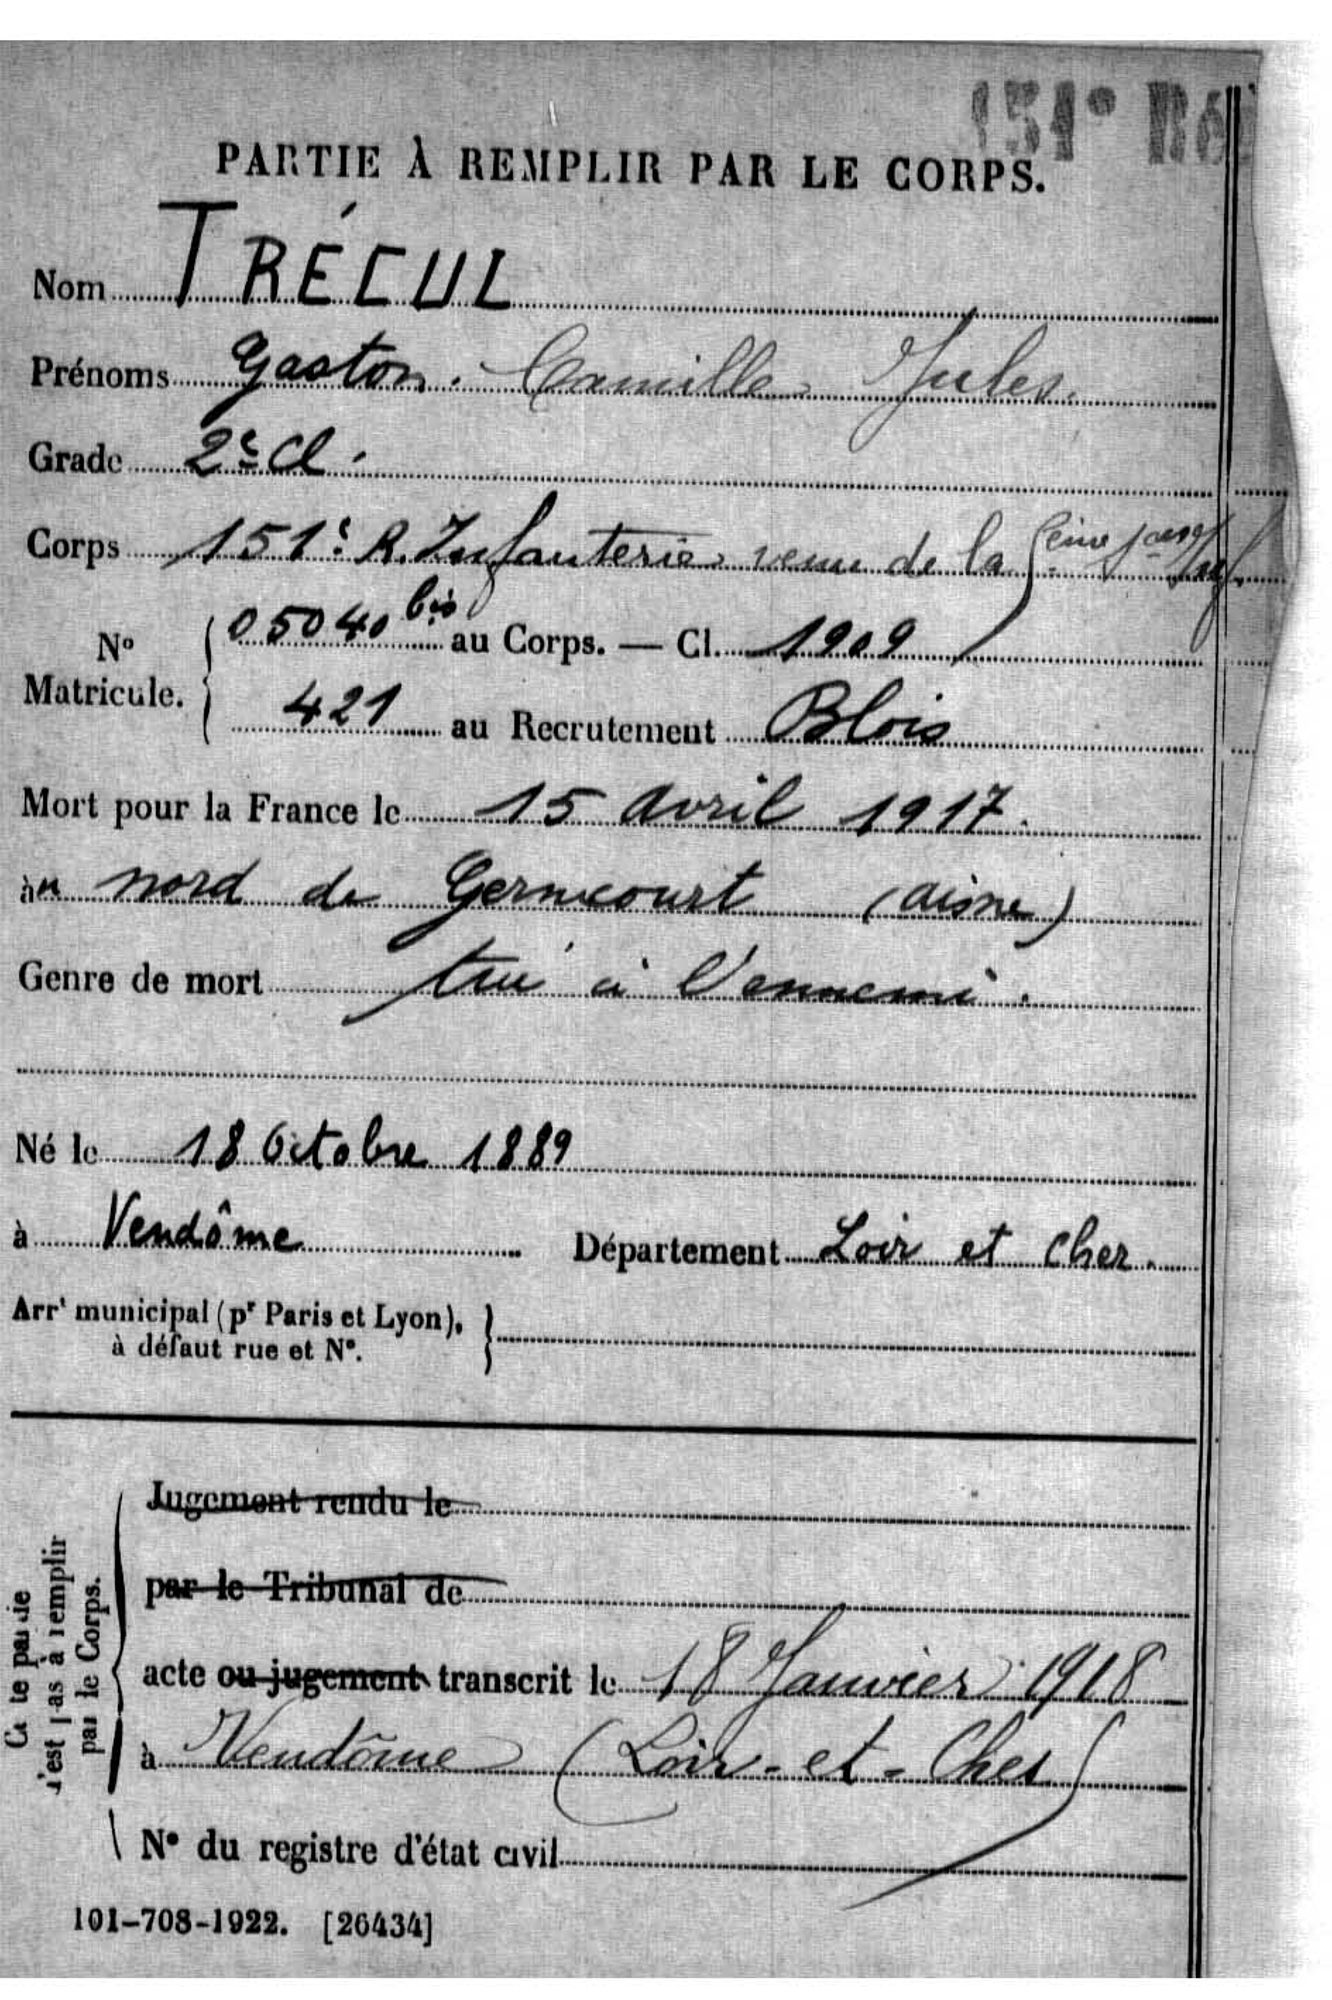 151e
PARTIE À REMPLIR PAR LE CORPS.
Nom TRÉCUL
Prénoms Gaston. Camille Jules.
Grade 2e Cl.
Corps 151e R. Infanterie venu de la
No Matricule. 05040 bis au Corps. — Cl. 1909
421 au Recrutement Blois
Mort pour la France le 15 Avril 1917.
au nord de Gernicourt (Aisne)
Genre de mort tué à l'ennemi.
Né le 18 Octobre 1889
à Vendôme Département Loir et Cher.
Arrt municipal (pr Paris et Lyon),
à défaut rue et No.
Jugement rendu le
par le Tribunal de
acte ou jugement transcrit le 18 Janvier 1918
à Vendôme (Loir-et-Cher)
No du registre d'état civil
Cette partie
n'est pas à remplir
par le Corps.
101-708-1922. [26434]